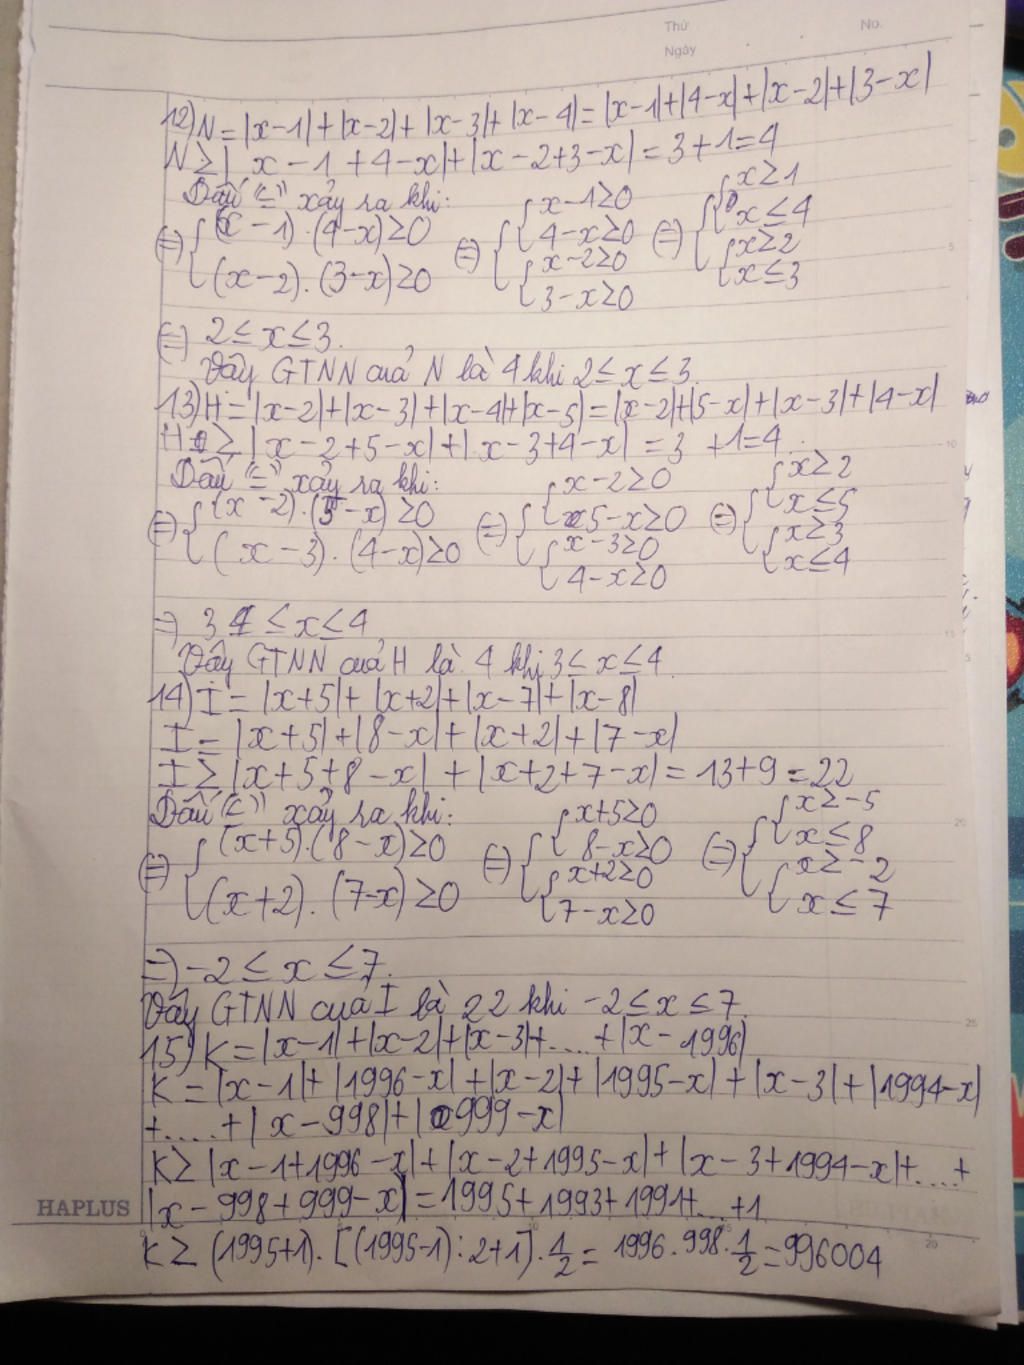 Thứ No.
Ngày
12) N = |x-1| + |x-2| + |x-3| + |x-4| = |x-1| + |4-x| + |x-2| + |3-x|
N ≥ |x-1+4-x| + |x-2+3-x| = 3+1=4
Dấu "=" xảy ra khi:
(=) { (x-1).(4-x)≥0 (=) { { x-1≥0 (=) { { x≥1
{ (x-2).(3-x)≥0 { 4-x≥0 { x≤4
{ x-2≥0 { x≥2
{ 3-x≥0 { x≤3
(=) 2≤x≤3.
Vậy GTNN của N là 4 khi 2≤x≤3.
13) H = |x-2|+|x-3|+|x-4|+|x-5| = |x-2|+|5-x|+|x-3|+|4-x|
H ≥ |x-2+5-x|+|x-3+4-x| = 3+1=4.
Dấu "=" xảy ra khi:
(=) { (x-2).(5-x)≥0 (=) { { x-2≥0 (=) { { x≥2
{ (x-3).(4-x)≥0 { 5-x≥0 { x≤5
{ x-3≥0 { x≥3
{ 4-x≥0 { x≤4
=) 3≤x≤4
Vậy GTNN của H là 4 khi 3≤x≤4.
14) I = |x+5|+|x+2|+|x-7|+|x-8|
I = |x+5|+|8-x|+|x+2|+|7-x|
I ≥ |x+5+8-x| + |x+2+7-x| = 13+9=22
Dấu "=" xảy ra khi:
(=) { (x+5).(8-x)≥0 (=) { { x+5≥0 (=) { { x≥-5
{ (x+2).(7-x)≥0 { 8-x≥0 { x≤8
{ x+2≥0 { x≥-2
{ 7-x≥0 { x≤7
=) -2≤x≤7.
Vậy GTNN của I là 22 khi -2≤x≤7.
15) K = |x-1|+|x-2|+|x-3|+.....+|x-1996|
K = |x-1|+|1996-x|+|x-2|+|1995-x|+|x-3|+|1994-x|
+.....+|x-998|+|999-x|
K≥ |x-1+1996-x|+|x-2+1995-x|+|x-3+1994-x|+....+
|x-998+999-x| = 1995+1993+1991+...+1
K≥ (1995+1).[(1995-1):2+1].1/2 = 1996.998.1/2=996004
HAPLUS